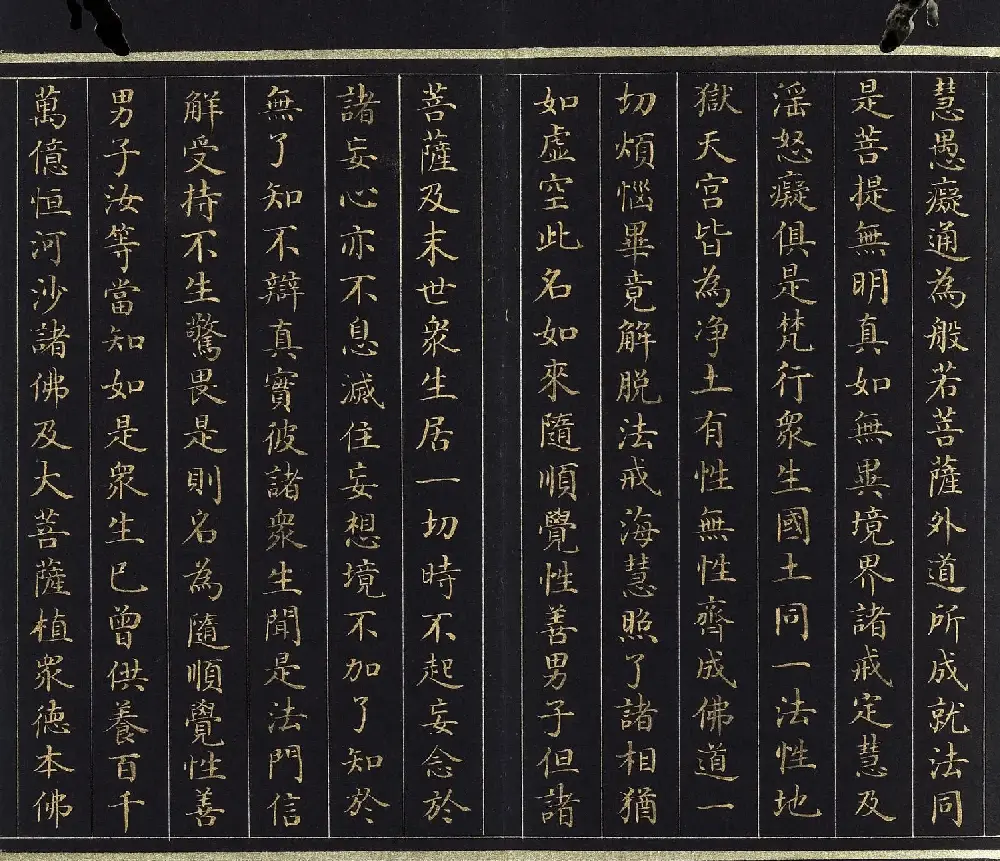 慧愚癡通為般若菩薩外道所成就法同
是菩提無明真如無異境界諸戒定慧及
淫怒癡俱是梵行衆生國土同一法性地
獄天宮皆為净土有性無性齊成佛道一
切煩惱畢竟解脱法戒海慧照了諸相猶
如虚空此名如來隨順覺性善男子但諸
菩薩及末世衆生居一切時不起妄念於
諸妄心亦不息滅住妄想境不加了知於
無了知不辯真實彼諸衆生聞是法門信
解受持不生驚畏是則名為隨順覺性善
男子汝等當知如是衆生已曾供養百千
萬億恒河沙諸佛及大菩薩植衆徳本佛